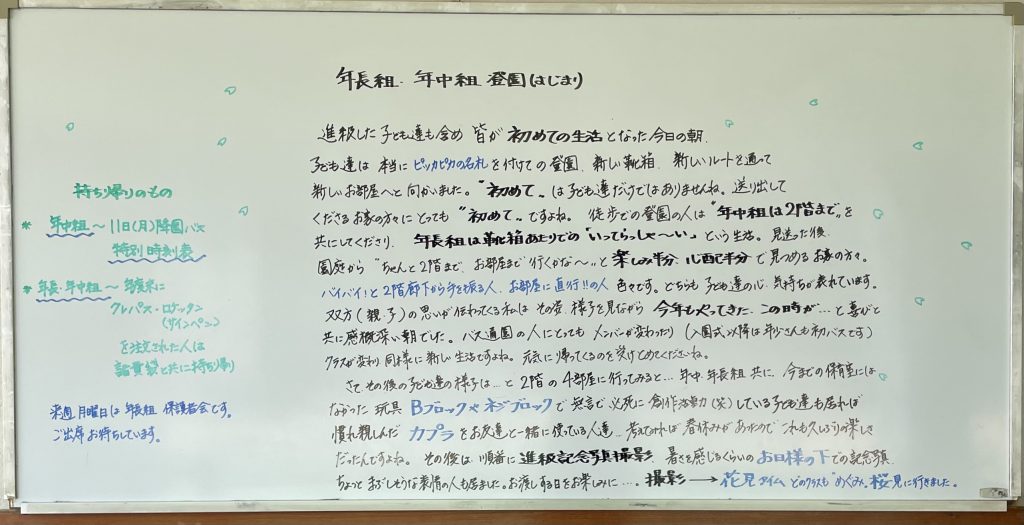 年長組・年中組 登園はじまり
進級した子ども達も含め 皆が 初めての生活となった今日の朝、
子ども達は 本当に ピッカピカの名札を付けての登園。新しい靴箱、新しいルートを通って
新しいお部屋へと向かいました。“初めて„は子ども達だけではありませんね。送り出して
くださるお家の方々にとっても“初めて„ですよね。徒歩での登園の人は“年中組は2階まで„を
共にしてくださり、年長組は靴箱あたりでの“いってらっしゃ〜い„という生活。見送った後、
園庭から“ちゃんと2階まで、お部屋まで行くかな〜„と楽しみ半分、心配半分で見つめるお家の方々。
バイバイ!と2階廊下から手を振る人、お部屋に直行!!の人 色々です。どちらも子ども達の心、気持ちが表れています。
双方(親・子)の思いが伝わってくる私は その姿、様子を見ながら 今年もやってきた この時が…と喜びと
共に感慨深い朝でした。バス通園の人にとっても メンバーが変わったり(入園式以降は年少さんも初バスです)
クラスが変わり 同様に新しい生活ですよね。元気に帰ってくるのを受けとめてくださいね。
さて その後の子ども達の様子は…と2階の4部屋に行ってみると…年中、年長組共に、今までの保育室には
なかった玩具 Bブロックやネジブロックで 無言で 必死に 創作活動(笑)している子ども達も居れば
慣れ親しんだ カプラをお友達と一緒に使っている人達…考えてみれば 春休みがあったので これも久しぶりの楽しさ
だったんですよね。その後は、順番に進級記念写真撮影 暑さを感じるくらいの お日様の下での記念写真、
ちょっと まぶしそうな表情の人も居ました。お渡しする日をお楽しみに…。撮影→花見タイム どのクラスも“めぐみ„桜見に行きました。
持ち帰りのもの
* 年中組〜11日(月)降園バス
特別時刻表
* 年長・年中組〜年度末に
クレパス・ロケッタン
(サインペン)
を注文された人は
諸費袋と共に持ち帰り
来週 月曜日は 年長組 保護者会です。
ご出席お待ちしています。